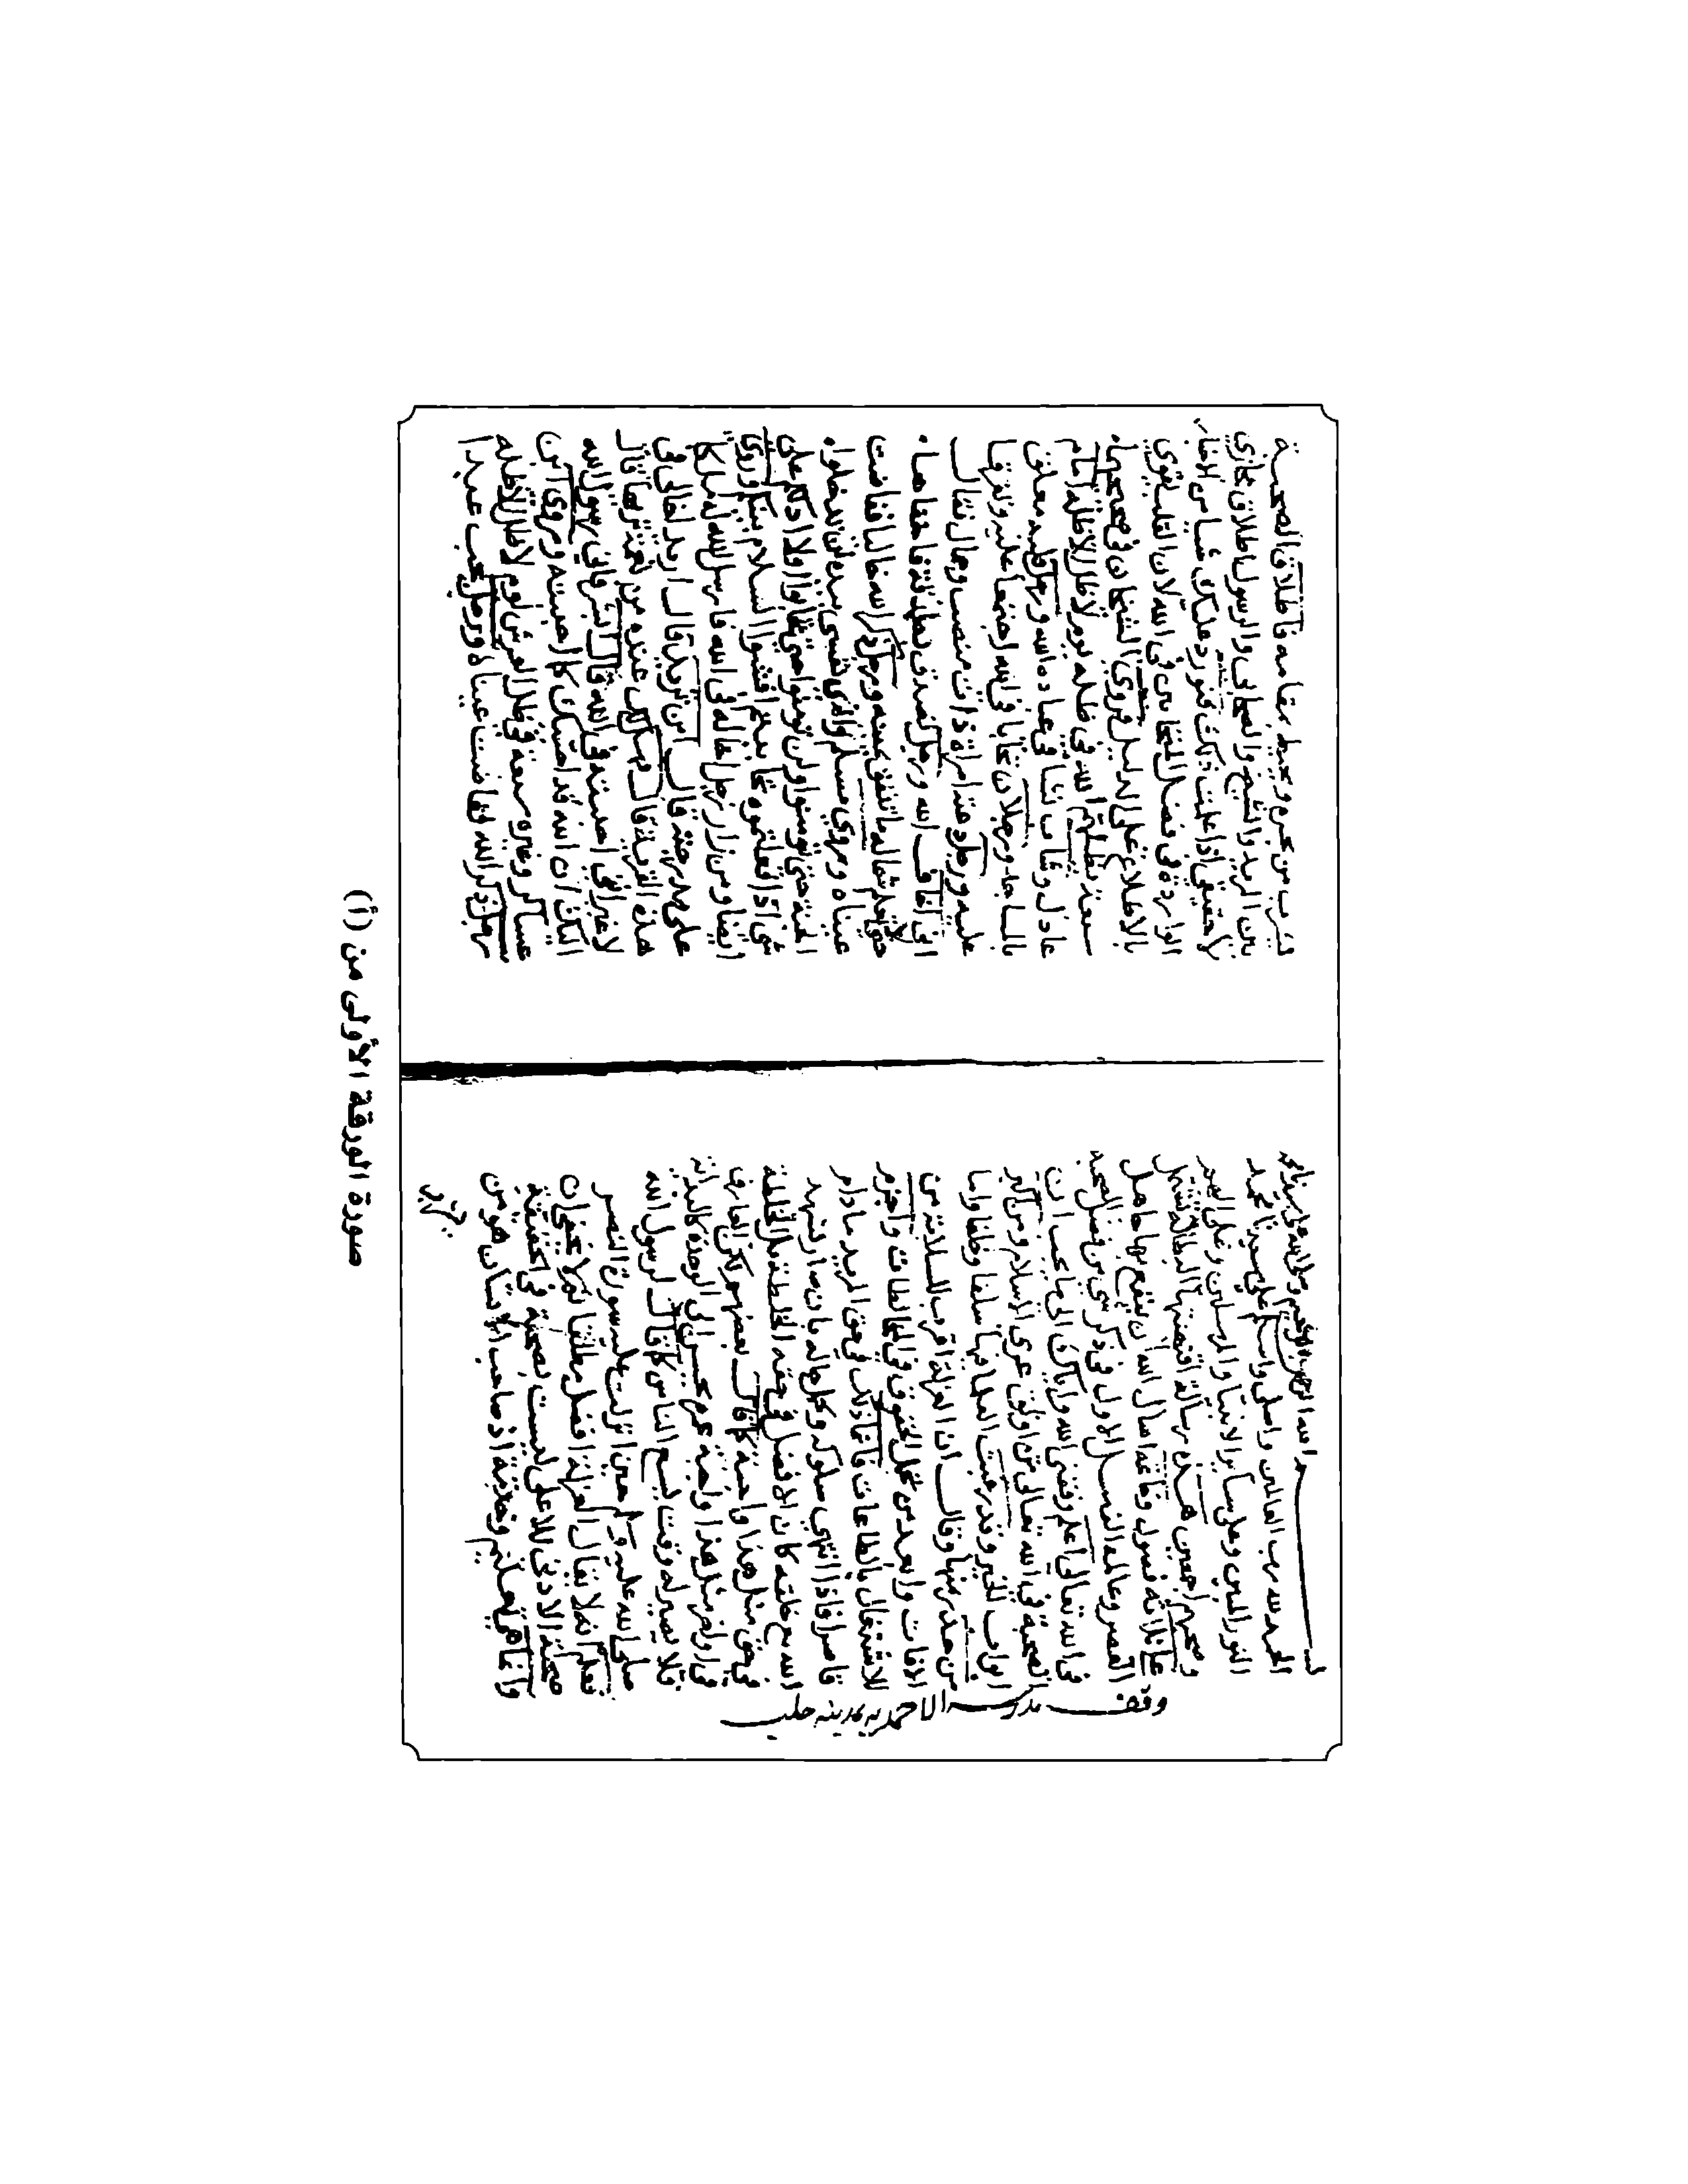 بسم الله الرحمن الرحيم وصلى الله على سيدنا محمد
الحمد لله رب العالمين واصلي واسلم على سيدنا محمد
النور المبين وعلى ساير الانبيا والمرسلين وعلى الهم
وصحبهم اجمعين هذه رسالة اقتضتها البطالة تشتمل
على ثلاثة فصول وخاتمة اسال الله ان ينتفع بها جاهل
العصر وعالمه الفصل الاول في ذكر شي من فضل الصحبة
في الله تعالى اعلم وفقني الله واياك الى ما يحب ان
الصحبة في الله تعالى من اوثق عرى الاسلام ومن اكبر
ابواب الخير وقد رغبت العلما فيها سلفا وخلفا واما
من حذر منها وقال ان العزلة اقرب للسلامة من
الافات وابعد من تحمل الحقوق في المخالطات واجزم
للاشتغال بالطاعات فانما ذلك في حق المريد ما دام
قاصرا فاذا انتهى سلوكه وكمل حاله بان صار يشهد
الله مع خلقه كان الافضل في حقه الخلطة بل الخلطة
في حق مثل هذا واجبة كما قال بعضهم لكن العارف
مثل هذا واجبة الى الوحدة
فلا يصير له وقت يسع الناس كما قال لرسول الله
صلى الله عليه وسلم حين انزلت عليه سورة النصر
فعلم انه لا يقال العزلة افضل مطلقا ثم لا يخفى ان
صحبة الادنى للاعلى ليست بصحبة في الحقيقة
وانما هي تعليم وخدمة اذ صاحب الانسان هو من
يشرب
وقف مدرسة الاحمدية بمدينة حلب
يشرب من بحره ويحيط بمقامه فاطلاق الصحبة
بين المريد والشيخ والصحابي والرسول اطلاق مجازي
لا حقيقي اذا علمت ذلك فنورد عليك شيا من الاخبار
الواردة في فضل المتحابين في الله لان القلب يقوى
بالاطلاع على الدليل فروى الشيخان في صحيحهما
سبعة يظلهم الله في ظله يوم لا ظل الا ظله امام
عادل وشاب نشا في عبادة الله ورجل قلبه معلق
بالمساجد ورجلان تحابا في الله اجتمعا عليه وتفرقا
عليه ورجل دعته امراة ذات منصب وجمال فقال
اني اخاف الله ورجل تصدق بصدقة فاخفاها
حتى لا تعلم شماله ما تنفق يمينه ورجل ذكر الله خاليا ففاضت
عيناه وروى مسلم والذي نفسي بيده لن تدخلوا
الجنة حتى تومنوا ولن تومنوا حتى تحابوا اولا ادلكم على
شي اذا فعلتموه تحاببتم افشوا السلام بينكم وروي
ايضا ومن زار رجل اخا له في الله فارسل الله له ملكا
على مدرجته قال اين تريد قال اريد اخا لي في
هذه القرية قال هل لك عنده من نعمة تربها قال
لا غير اني احببته في الله قال ابشر فاني رسول الله
اليك ان الله قد احبك كما احببته وروى ابن
عساكر وغيره سبعة في ظل العرش يوم لا ظل الا ظله
رجل ذكر الله ففاضت عيناه ورجل يحب عبدا
صورة الورقة الأولى من (أ)